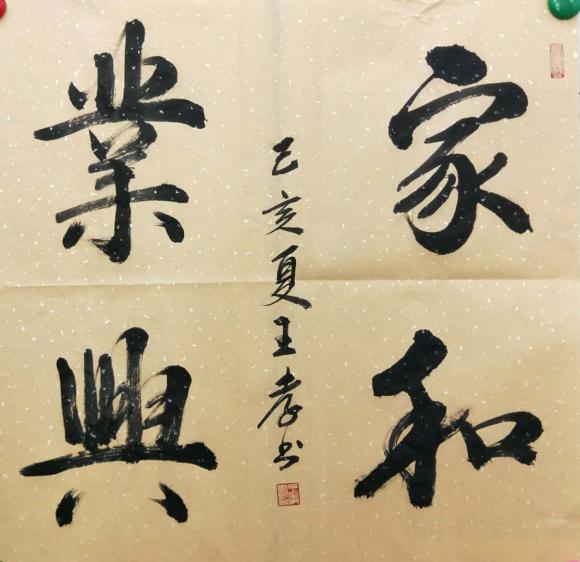 家和
業興
己亥夏王孝书